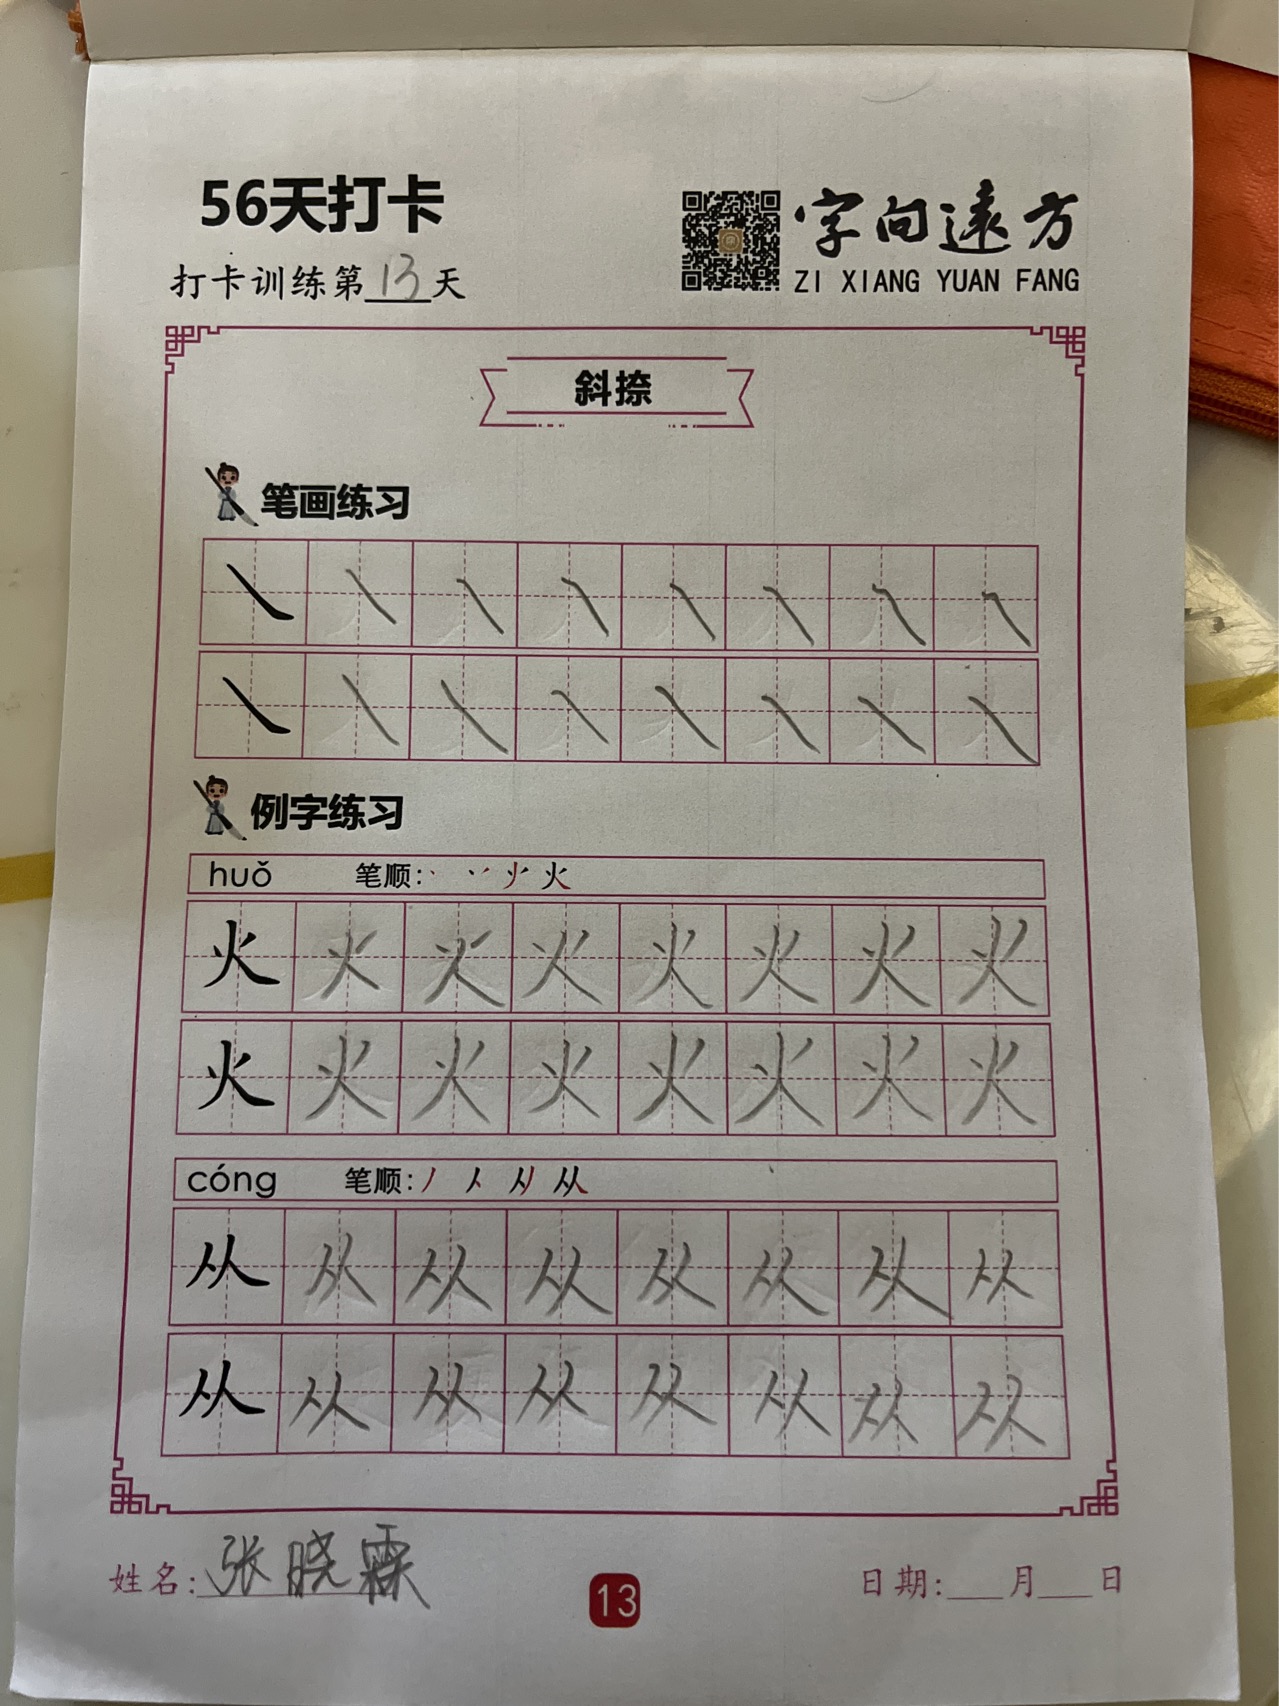 56天打卡
打卡训练第13天
字向远方
ZI XIANG YUAN FANG
斜捺
笔画练习
㇏ ㇏ ㇏ ㇏ ㇏ ㇏ ㇏ ㇏
㇏ ㇏ ㇏ ㇏ ㇏ ㇏ ㇏ ㇏
例字练习
huǒ 笔顺: 火
火 火 火 火 火 火 火 火
火 火 火 火 火 火 火 火
cóng 笔顺: 从
从 从 从 从 从 从 从 从
从 从 从 从 从 从 从 从
姓名: 张晓霖
13
日期: 月 日